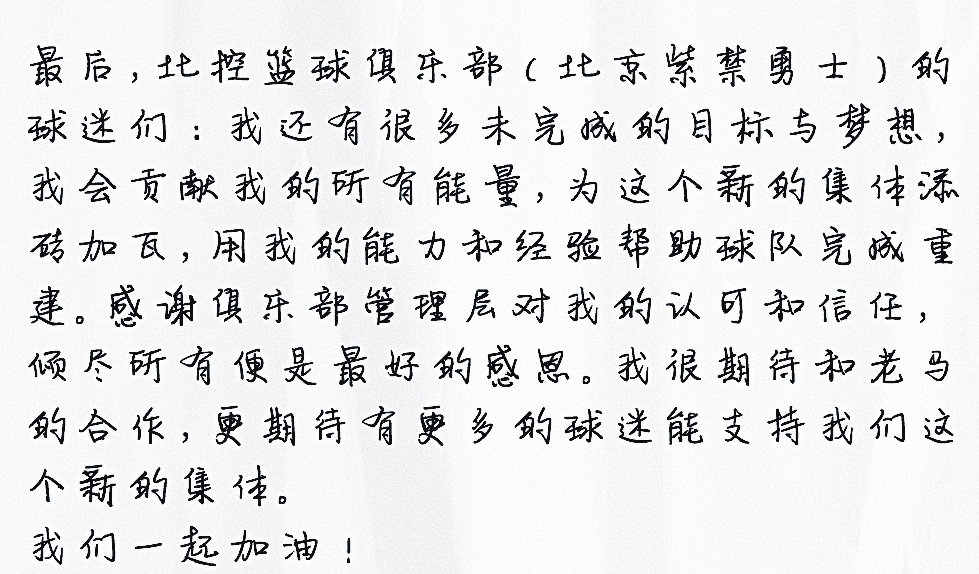 最后，北控篮球俱乐部（北京紫禁勇士）的
球迷们：我还有很多未完成的目标与梦想，
我会贡献我的所有能量，为这个新的集体添
砖加瓦，用我的能力和经验帮助球队完成重
建。感谢俱乐部管理层对我的认可和信任，
倾尽所有便是最好的感恩。我很期待和老马
的合作，更期待有更多的球迷能支持我们这
个新的集体。
我们一起加油！